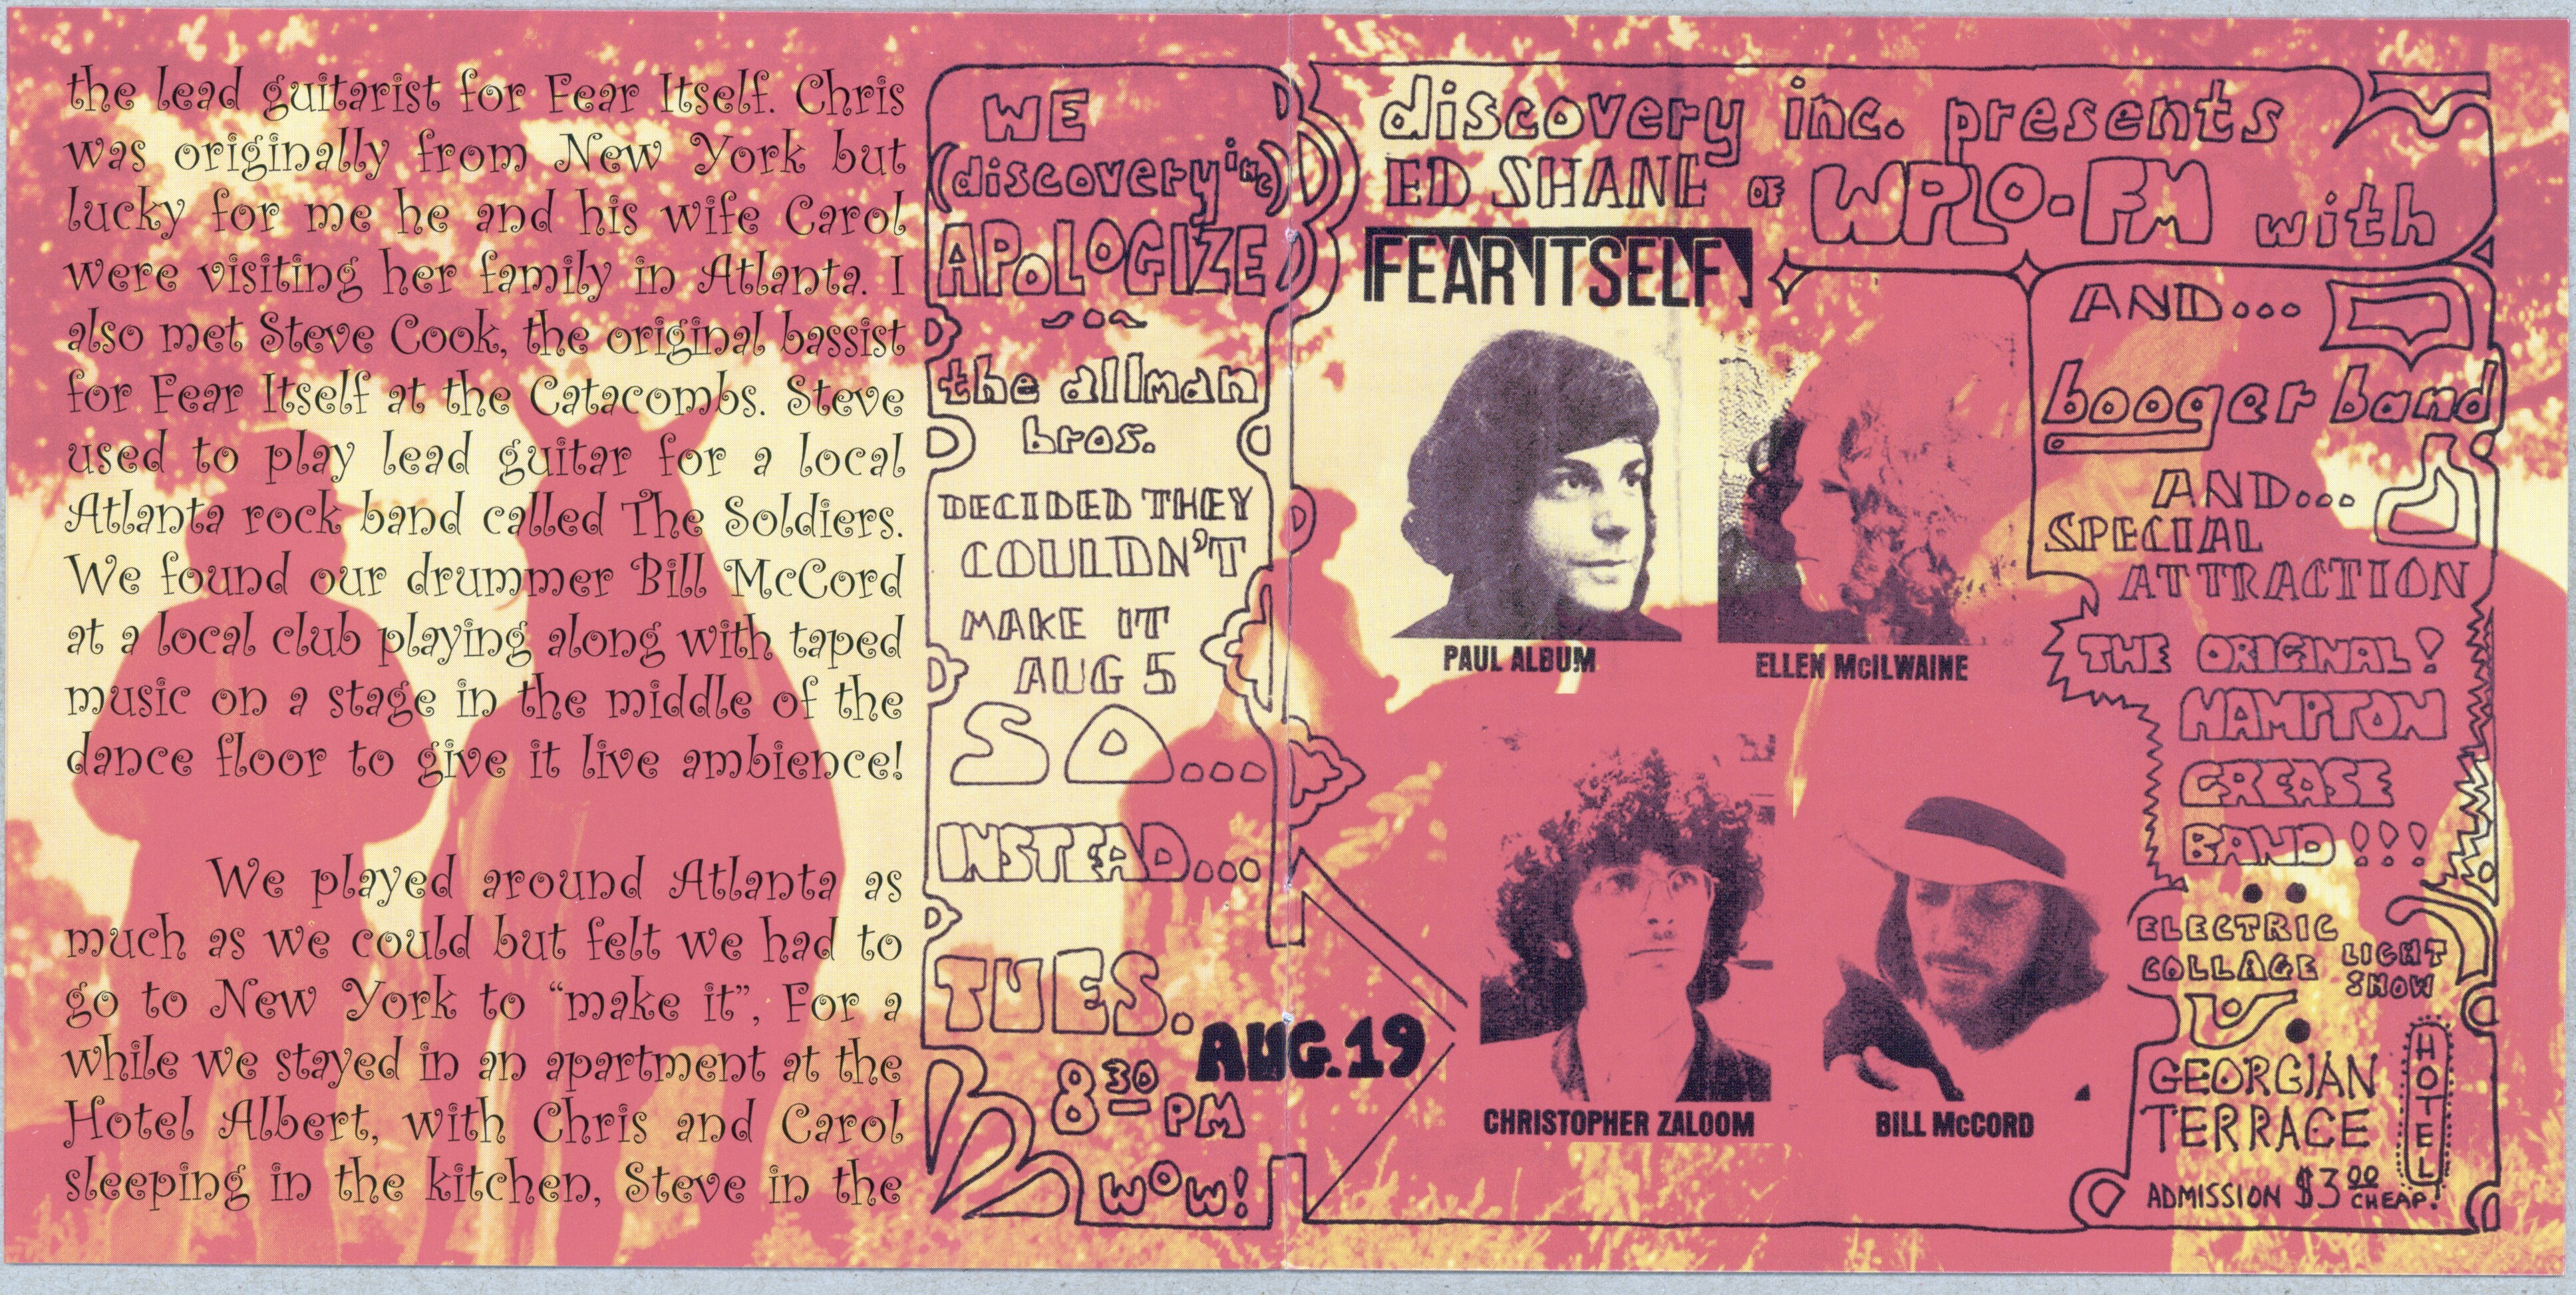 the lead guitarist for Fear Itself. Chris
was originally from New York but
lucky for me he and his wife Carol
were visiting her family in Atlanta. I
also met Steve Cook, the original bassist
for Fear Itself at the Catacombs. Steve
used to play lead guitar for a local
Atlanta rock band called The Soldiers.
We found our drummer Bill McCord
at a local club playing along with taped
music on a stage in the middle of the
dance floor to give it live ambience!
We played around Atlanta as
much as we could but felt we had to
go to New York to “make it”, For a
while we stayed in an apartment at the
Hotel Albert, with Chris and Carol
sleeping in the kitchen, Steve in the
WE
(discovery inc)
APOLOGIZE
the allman
bros.
DECIDED THEY
COULDN'T
MAKE IT
AUG 5
SO...
INSTEAD...
TUES.
AUG. 19
8 30 PM
WOW!
discovery inc. presents
ED SHANE OF WPLO-FM with
FEAR ITSELF
PAUL ALBUM
ELLEN McILWAINE
CHRISTOPHER ZALOOM
BILL McCORD
AND...
booger band
AND...
SPECIAL
ATTRACTION
THE ORIGINAL!
HAMPTON
GREASE
BAND!!!
ELECTRIC
COLLAGE LIGHT
SHOW
GEORGIAN
TERRACE
HOTEL
ADMISSION $3 00
CHEAP!